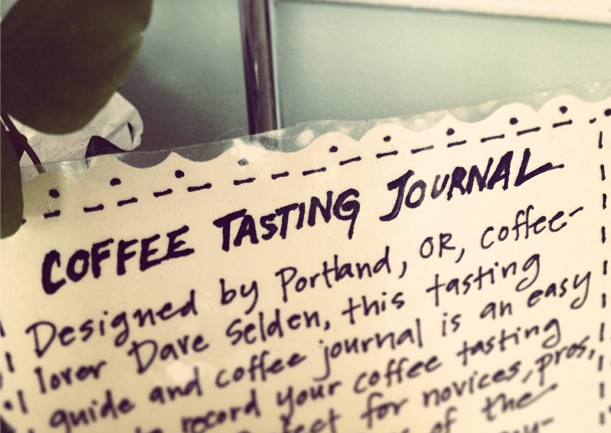 COFFEE TASTING JOURNAL
Designed by Portland, OR, coffee-
lover Dave Selden, this tasting
guide and coffee journal is an easy
record your coffee tasting
for novices, pros,
of the